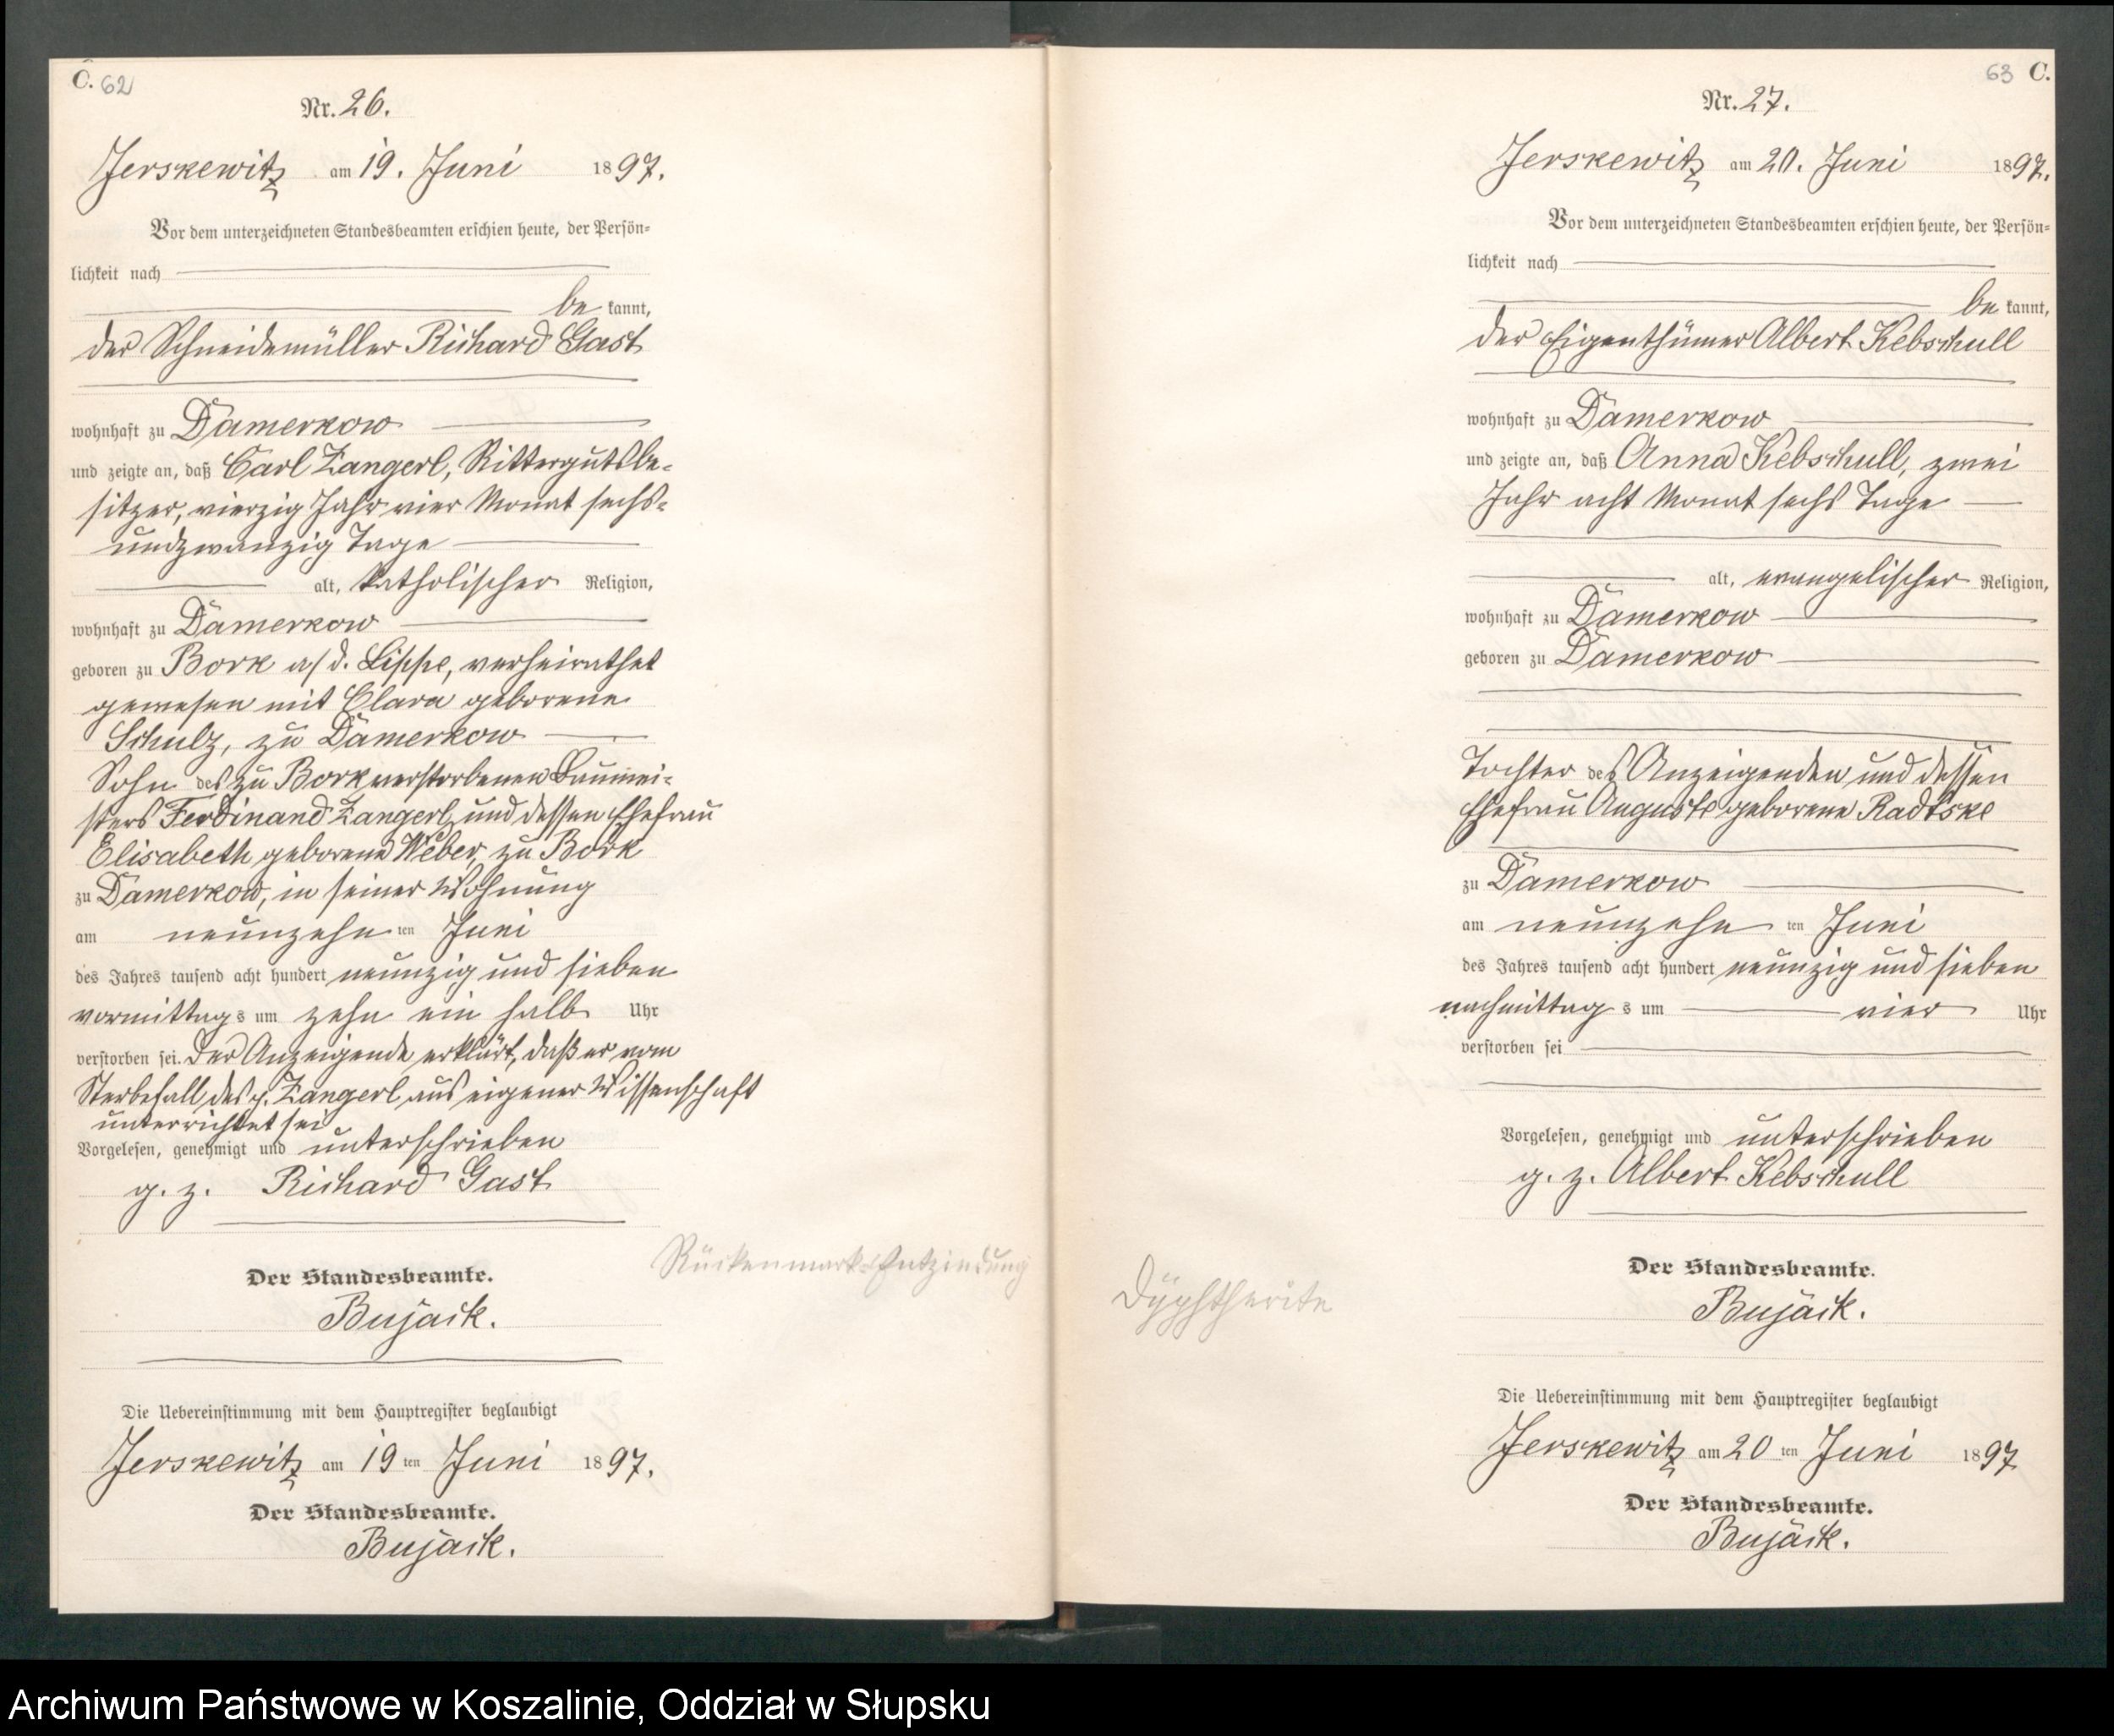 C. 62
Nr. 26.
Jerskewitz am 19. Juni 1897.
Vor dem unterzeichneten Standesbeamten erschien heute, der Persön-
lichkeit nach
be kannt,
der Schneidemüller Richard Gast
wohnhaft zu Damerkow
und zeigte an, daß Carl Zangerl, Rittergutsbe-
sitzer, vierzig Jahr vier Monat sechs-
undzwanzig Tage
alt, katholischer Religion,
wohnhaft zu Damerkow
geboren zu Bork a/d. Lippe, verheirathet
gewesen mit Clara geborene
Schulz, zu Damerkow
Sohn des zu Bork verstorbenen Baumei-
sters Ferdinand Zangerl, und dessen Ehefrau
Elisabeth geborene Weber, zu Bork
zu Damerkow, in seiner Wohnung
am neunzehn ten Juni
des Jahres tausend acht hundert neunzig und sieben
vormittag s um zehn ein halb Uhr
verstorben sei. Der Anzeigende erklärt, daß er vom
Sterbefall des p. Zangerl aus eigener Wissenschaft
unterrichtet sei
Vorgelesen, genehmigt und unterschrieben
g. z. Richard Gast
Rückenmarks-Entzindung
Der Standesbeamte.
Bujack.
Die Uebereinstimmung mit dem Hauptregister beglaubigt
Jerskewitz am 19 ten Juni 1897.
Der Standesbeamte.
Bujack.
63 C.
Nr. 27.
Jerskewitz am 20. Juni 1897.
Vor dem unterzeichneten Standesbeamten erschien heute, der Persön-
lichkeit nach
be kannt,
der Eigenthümer Albert Kebschull
wohnhaft zu Damerkow
und zeigte an, daß Anna Kebschull, zwei
Jahr acht Monat sechs Tage
alt, evangelischer Religion,
wohnhaft zu Damerkow
geboren zu Damerkow
Tochter des Anzeigenden und dessen
Ehefrau Auguste geborene Radtske
zu Damerkow
am neunzehn ten Juni
des Jahres tausend acht hundert neunzig und sieben
nachmittag s um vier Uhr
verstorben sei
Vorgelesen, genehmigt und unterschrieben
g. z. Albert Kebschull
Dyphtherite
Der Standesbeamte.
Bujack.
Die Uebereinstimmung mit dem Hauptregister beglaubigt
Jerskewitz am 20 ten Juni 1897
Der Standesbeamte.
Bujack.
Archiwum Państwowe w Koszalinie, Oddział w Słupsku